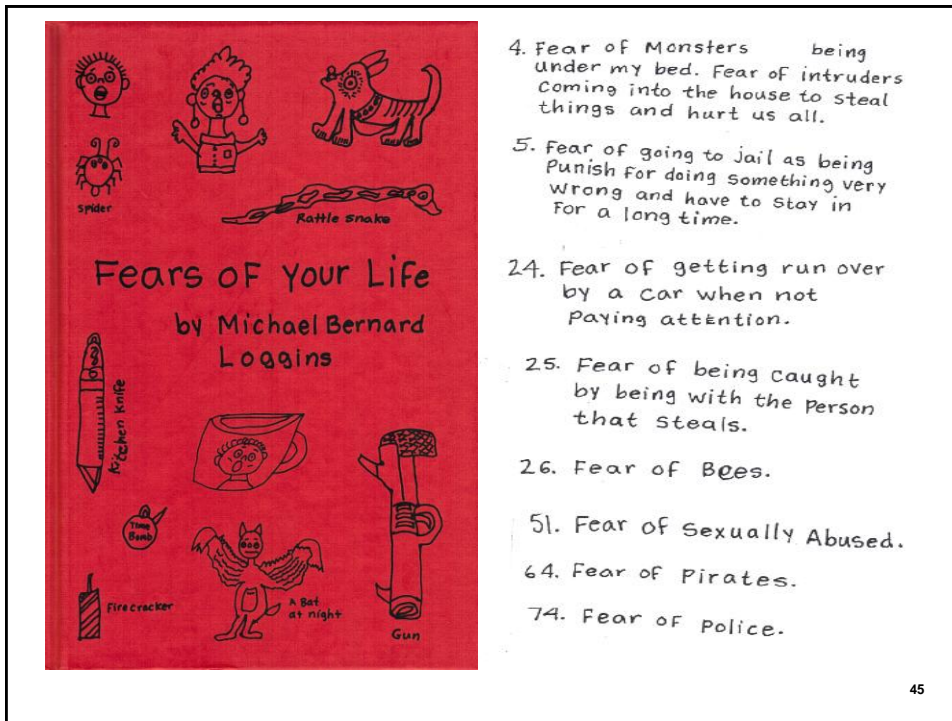 spider
Rattle Snake
Fears of Your Life
by Michael Bernard
Loggins
Kitchen Knife
Time
Bomb
Firecracker
A Bat
at night
Gun
4. Fear of Monsters being
under my bed. Fear of intruders
coming into the house to steal
things and hurt us all.
5. Fear of going to jail as being
Punish for doing something very
wrong and have to stay in
for a long time.
24. Fear of getting run over
by a car when not
Paying attention.
25. Fear of being caught
by being with the person
that steals.
26. Fear of Bees.
51. Fear of Sexually Abused.
64. Fear of Pirates.
74. Fear of Police.
45